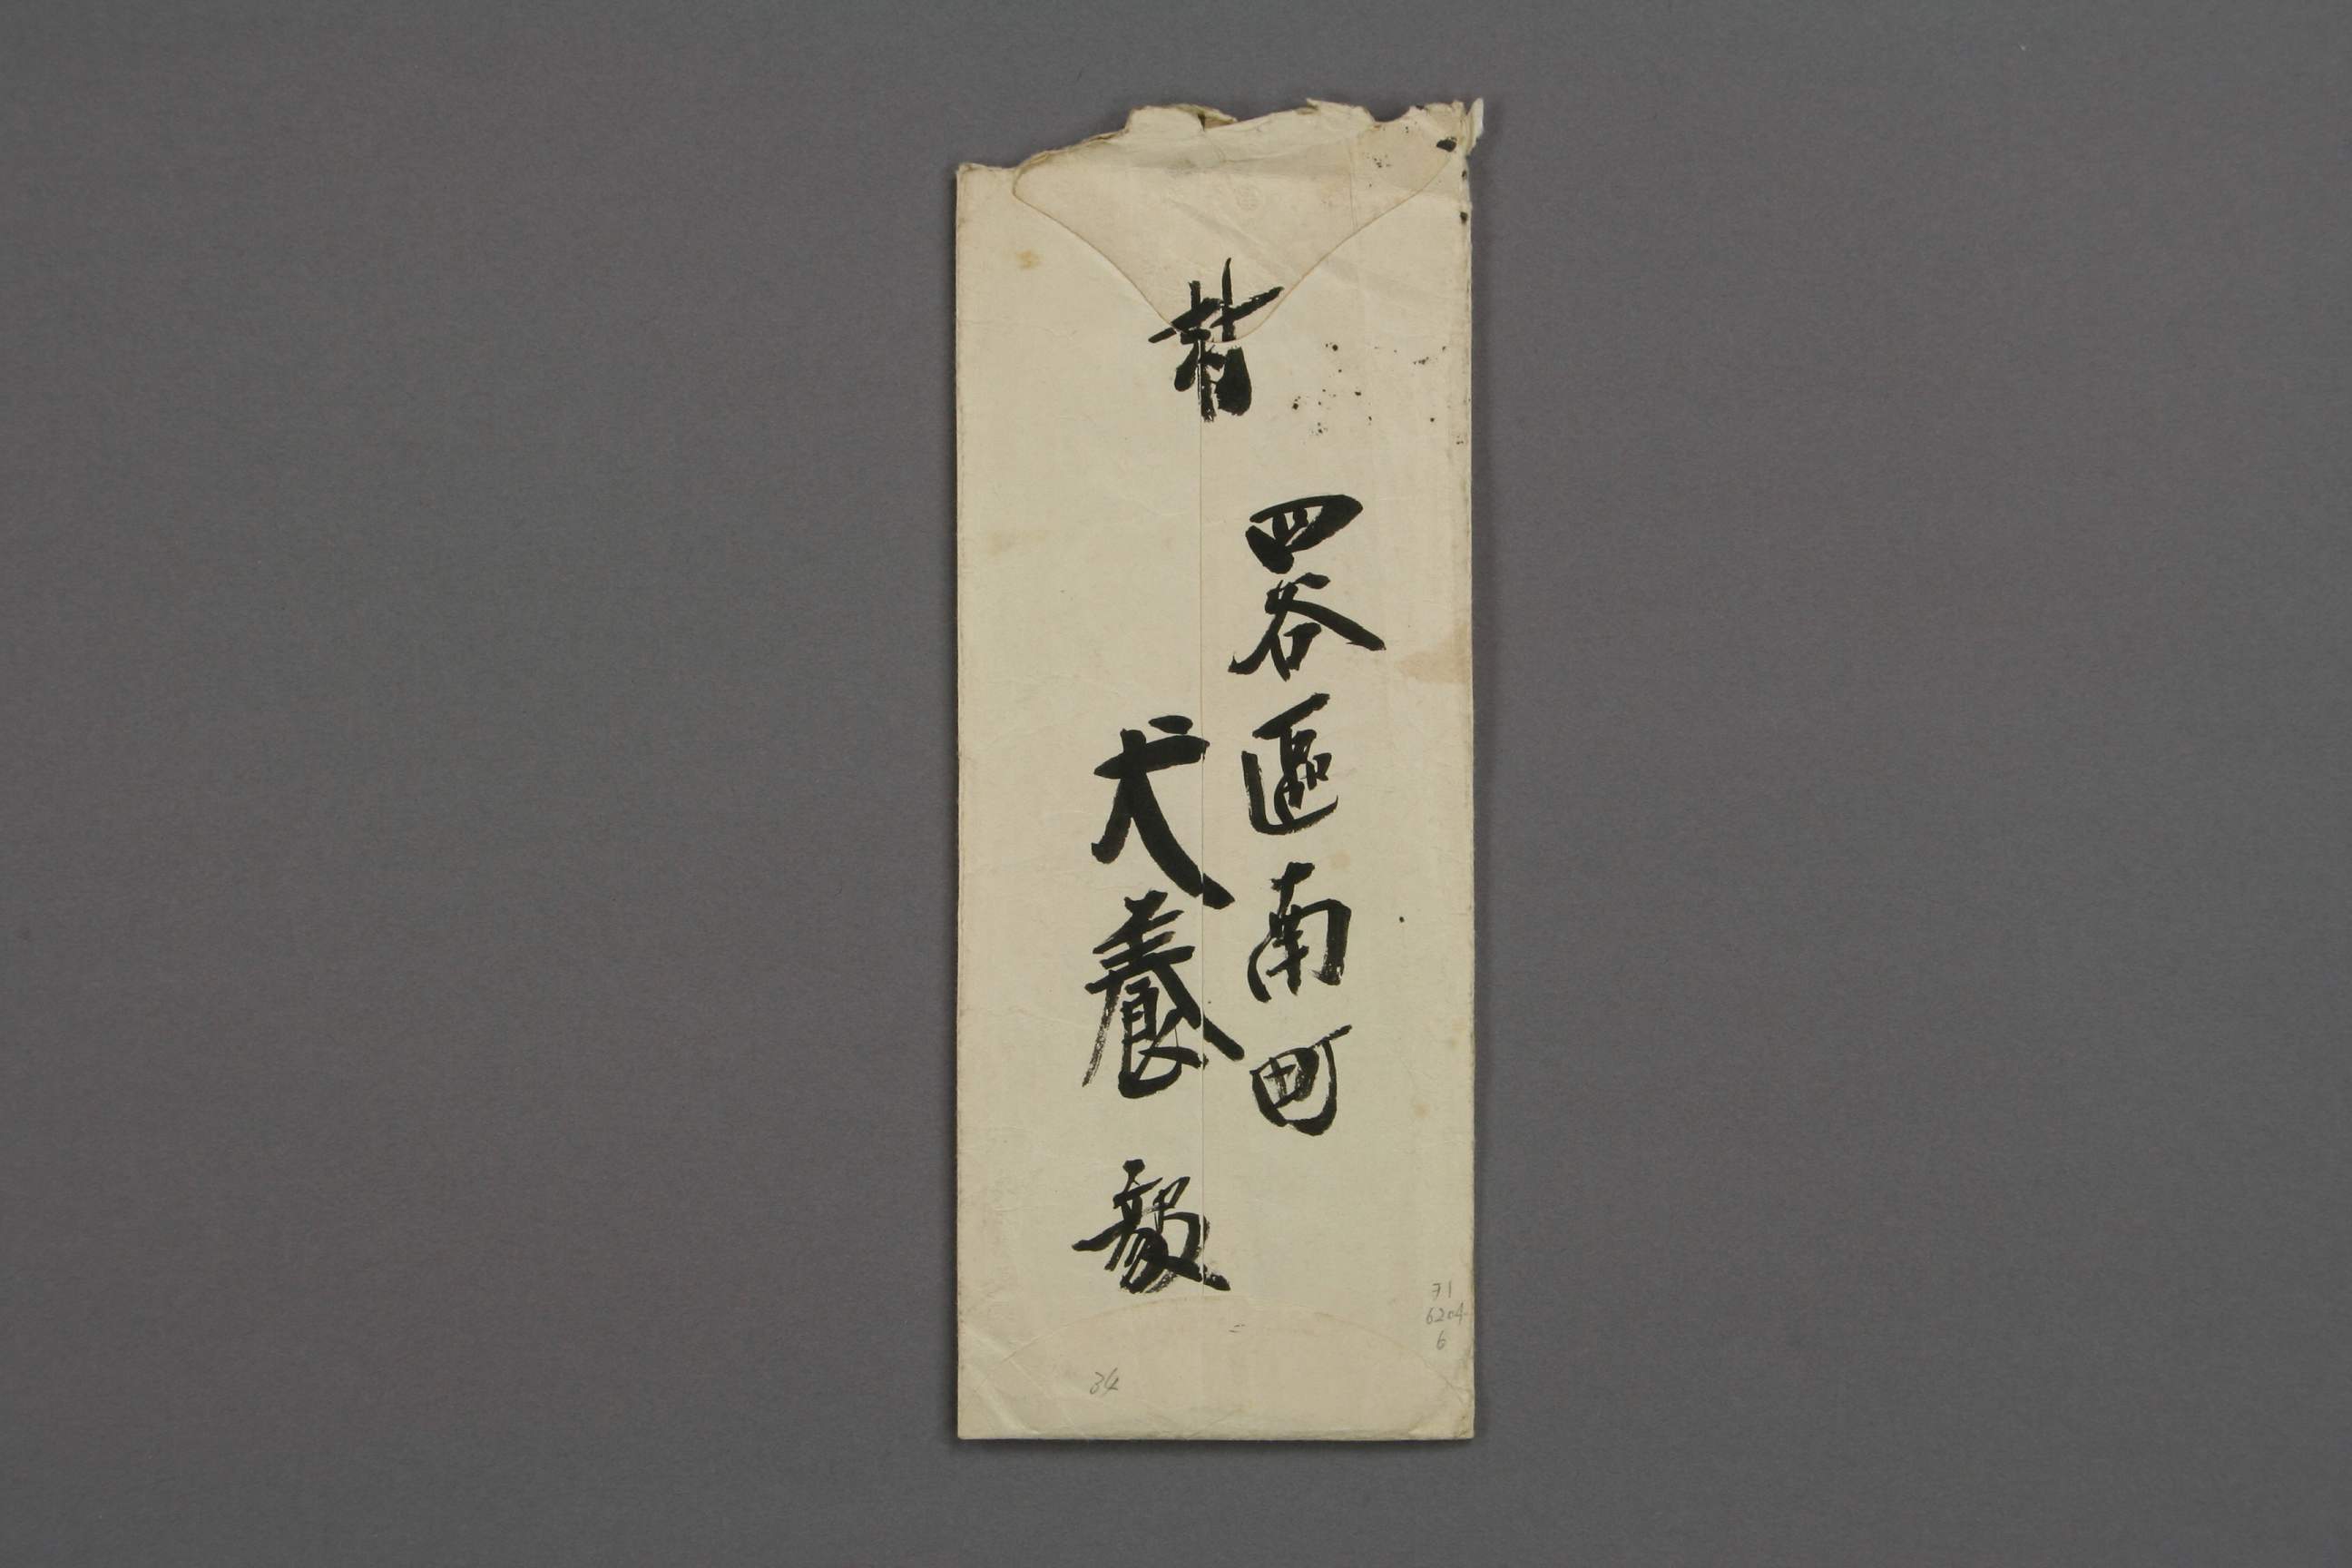 四谷區南町
犬養毅
6204
6
34